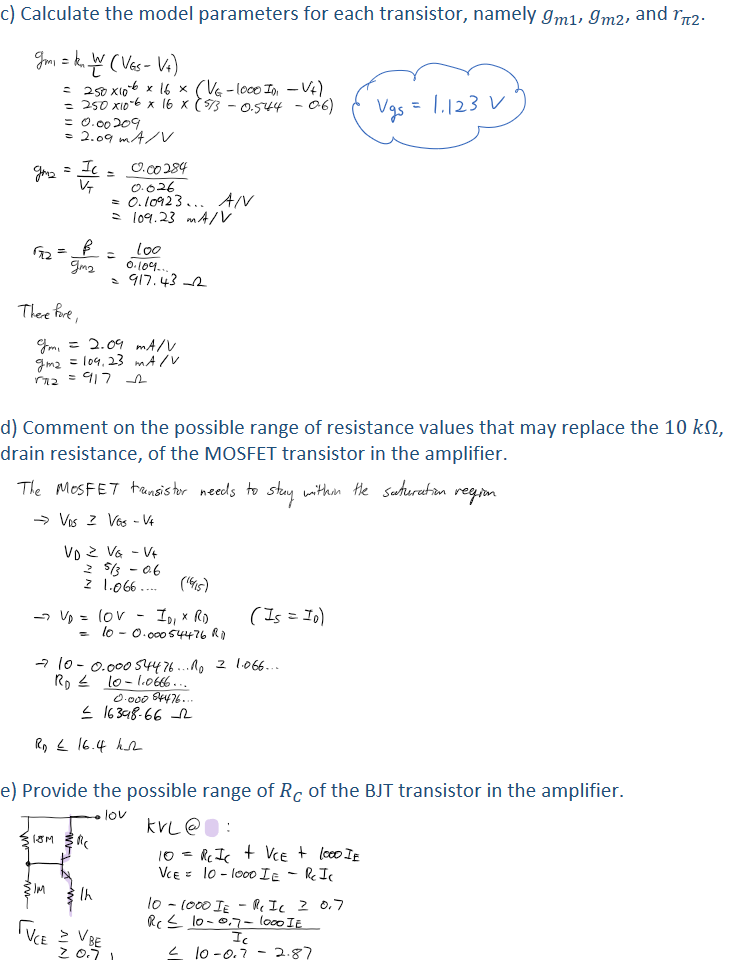 c) Calculate the model parameters for each transistor, namely gm1, gm2, and rπ2.
gm1 = kn W/L (VGS - Vt)
= 250 x10^-6 x 16 x (VG - 1000 ID1 - Vt)
= 250 x10^-6 x 16 x (5/3 - 0.544 - 0.6)
= 0.00209
= 2.09 mA/V
Vgs = 1.123 V
gm2 = IC/VT = 0.00284/0.026
= 0.10923... A/V
= 109.23 mA/V
rπ2 = β/gm2 = 100/0.109...
= 917.43 Ω
Therefore,
gm1 = 2.09 mA/V
gm2 = 109.23 mA/V
rπ2 = 917 Ω
d) Comment on the possible range of resistance values that may replace the 10 kΩ,
drain resistance, of the MOSFET transistor in the amplifier.
The MOSFET transistor needs to stay within the saturation region
→ VDS ≥ VGS - Vt
VD ≥ VG - Vt
≥ 5/3 - 0.6
≥ 1.066.... (16/15)
→ VD = 10V - ID1 x RD (IS = ID)
= 10 - 0.00054476 RD
→ 10 - 0.00054476...RD ≥ 1.066...
RD ≤ 10 - 1.0666.../0.00054476...
≤ 16398.66 Ω
RD ≤ 16.4 kΩ
e) Provide the possible range of RC of the BJT transistor in the amplifier.
10V
1.8M RC
1M 1k
KVL @ :
10 = RC IC + VCE + 1000 IE
VCE = 10 - 1000 IE - RC IC
10 - 1000 IE - RC IC ≥ 0.7
RC ≤ 10 - 0.7 - 1000 IE/IC
≤ 10 - 0.7 - 2.87
VCE ≥ VBE
≥ 0.7